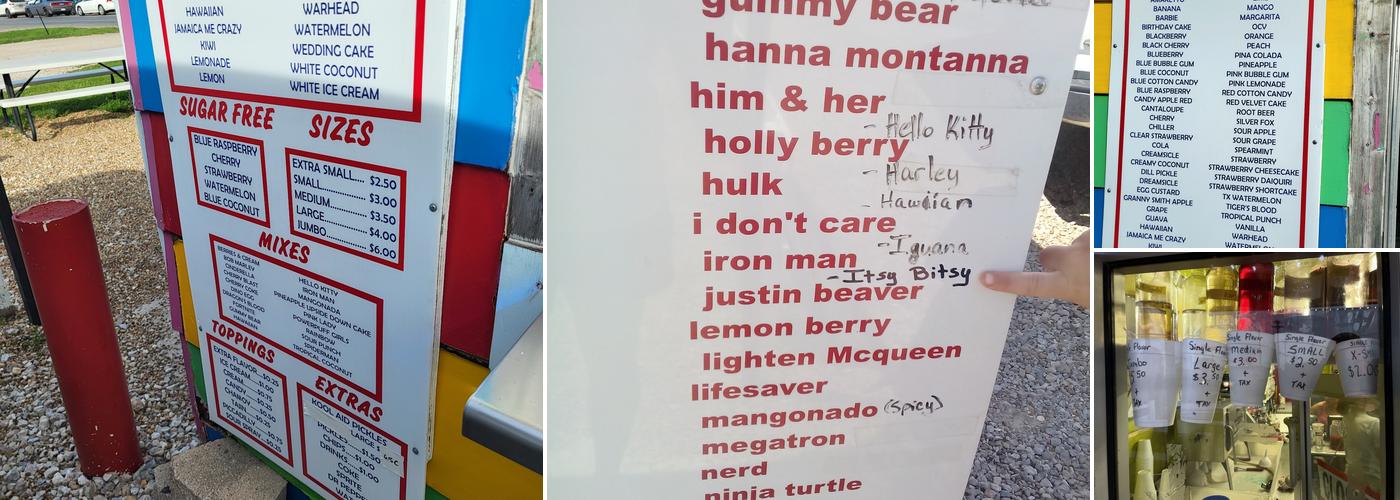 HAWAIIAN
JAMAICA ME CRAZY
KIWI
LEMONADE
LEMON
WARHEAD
WATERMELON
WEDDING CAKE
WHITE COCONUT
WHITE ICE CREAM
SUGAR FREE
BLUE RASPBERRY
CHERRY
STRAWBERRY
WATERMELON
BLUE COCONUT
SIZES
EXTRA SMALL.... $2.50
SMALL............ $3.00
MEDIUM.......... $3.50
LARGE............ $4.00
JUMBO............ $6.00
MIXES
BERRIES & CREAM
BOB MARLEY
CINDERELLA
CHERRY BLAST
CHERRY COKE
DINO EGG
DRAGON'S BLOOD
FORTNITE
GUMMY BEAR
HAWAIIAN
HELLO KITTY
IRON MAN
MANGONADA
PINEAPPLE UPSIDE DOWN CAKE
PINK LADY
POWERPUFF GIRLS
RAINBOW
SOUR PUNCH
SPIDERMAN
TROPICAL COCONUT
TOPPINGS
EXTRA FLAVOR....$0.25
ICE CREAM......$1.00
CREAM
CANDY
CHAMOY
TAJIN
PICCADILLY
SOUR SPRAY
EXTRAS
KOOL AID PICKLES
LARGE
PICKLES
CHIPS
DRINKS
COKE
SPRITE
DR PEPPER
gummy bear
hanna montanna
him & her
- Hello Kitty
holly berry
- Harley
hulk
- Hawaiian
i don't care
- Iguana
iron man
- Itsy Bitsy
justin beaver
lemon berry
lighten Mcqueen
lifesaver
mangonado (spicy)
megatron
nerd
ninja turtle
BANANA
BARBIE
BIRTHDAY CAKE
BLACKBERRY
BLACK CHERRY
BLUEBERRY
BLUE BUBBLE GUM
BLUE COCONUT
BLUE COTTON CANDY
BLUE RASPBERRY
CANDY APPLE RED
CANTALOUPE
CHERRY
CHILLER
CLEAR STRAWBERRY
COLA
CREAMSICLE
CREAMY COCONUT
DILL PICKLE
DREAMSICLE
EGG CUSTARD
GRANNY SMITH APPLE
GRAPE
GUAVA
HAWAIIAN
JAMAICA ME CRAZY
KIWI
MANGO
MARGARITA
OCV
ORANGE
PEACH
PINA COLADA
PINEAPPLE
PINK BUBBLE GUM
PINK LEMONADE
RED COTTON CANDY
RED VELVET CAKE
ROOT BEER
SILVER FOX
SOUR APPLE
SOUR GRAPE
SPEARMINT
STRAWBERRY
STRAWBERRY CHEESECAKE
STRAWBERRY DAIQUIRI
STRAWBERRY SHORTCAKE
TX WATERMELON
TIGER'S BLOOD
TROPICAL PUNCH
VANILLA
WARHEAD
WATERMELON
Single Flavor
Large
+
TAX
Single Flavor
Medium
$3.00
+
TAX
Single Flavor
SMALL
$2.50
+
TAX
X-Small